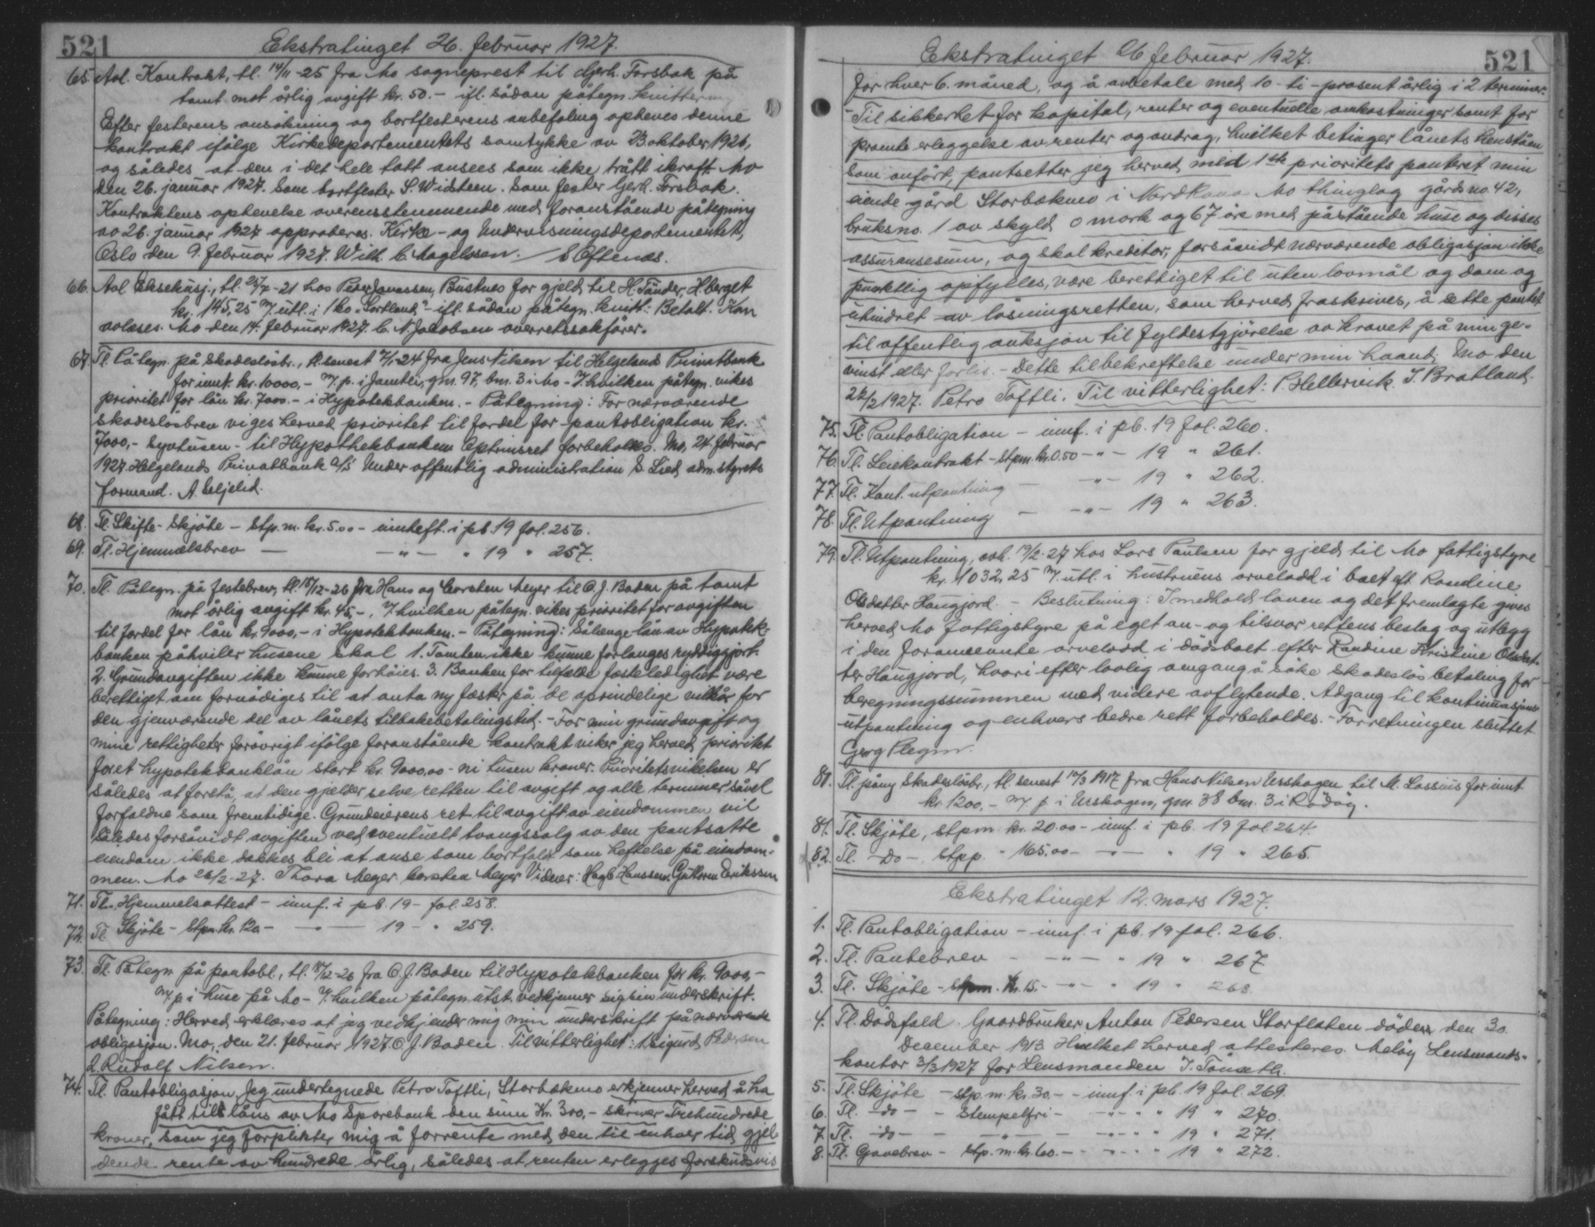 521
Ekstratinget 26. februar 1927.
65. Avl. Kontrakt, tl. 14/11-25 fra Mo sogneprest til Gerh. Forsbak på
tomt mot årlig avgift kr. 50.- ifl. sådan påtegn.
Efter festerens ansökning og bortfesterens anbefaling opheves denne
kontrakt ifölge Kirkedepartementets samtykke av 23 oktober 1926,
og således at den i det hele tatt ansees som ikke trått i kraft. Mo
den 26. januar 1927. Som bortfester S. Widsteen. Som fester Gerh. Forsbak.
Kontraktens ophevelse overensstemmende med foranstående påtegning
av 26. januar 1927 approberes. Kirke- og Undervisningsdepartementet,
Oslo den 9. februar 1927. Will. C. Magelssen. / S. Oftenæs.
66. Avl. Eksekusj., tl. 27/7-21 hos Peder Jonassen, Bustnes for gjeld til H. Tander, Hberget
kr. 145,25 m/ utl. i 1 ko "Sortland" ifl. sådan påtegn. kvitt: Betalt. Kan
avleses. Mo den 14. februar 1927. C. N. Jakobsen overretssakförer.
67. Tl. Påtegn. på skadeslösbr., tl. senest 2/1-24 fra Jens Nilsen til Helgelands Privatbank
for inntil kr. 10000,- m/ p. i Jamtli, gnr. 97, bnr. 3 i Mo - i hvilken påtegn. vikes
prioritet for lån kr. 7000.- i Hypotekbanken. - Påtegning: For nærværende
skadeslösbrev viges herved prioritet til fordel for pantobligation kr.
7000,- syvtusen - til Hypothekbanken Optrinsret forbeholdes. Mo, 24 februar
1927. Helgelands Privatbank A/S Under offentlig administration S. Lied, adm.styrets
formand. A. Seljelid.
68. Tl. Skifte-skjöte - stp. m. kr. 5.00 - innheft. i pb. 19 fol. 256.
69. Tl. Hjemmelsbrev — - " - " 19 " 257.
70. Tl. Påtegn. på festebrev, tl. 18/12-26 fra Hans og Carsten Meyer til O. J. Baden på tomt
mot årlig avgift kr. 45 -, i hvilken påtegn. vikes prioritet for avgiften
til fordel for lån kr. 9000,- i Hypotekbanken. - Påtegning: Sålenge lån av Hypotek-
banken påhviler husene skal 1. Tomten ikke kunne forlanges ryddiggjort.
2. Grundavgiften ikke kunne forhöies. 3. Banken for tilfælde festeledighet være
berettiget om fornödiges til at anta ny fester på de oprindelige vilkår for
den gjenværende del av lånets tilbakebetalingstid. - For min grundavgift og
mine rettigheter forövrigt ifölge foranstående kontrakt viker jeg herved prioritet
foret hypotekbanklån stort kr. 9000,00 - ni tusen kroner. Prioritetsvikelsen er
således at forstå, at den gjelder selve retten til avgift og alle terminer såvel
forfaldne som fremtidige. Grundeierens ret til avgift av eiendommen vil
således forsåvidt avgiften ved eventuelt tvangssalg av den pantsatte
eiendom ikke dekkes bli at anse som bortfalt som heftelse på eiendom-
men. Mo 26/2-27. Thora Meyer Carsten Meyer Vidner: Hagb. Hanssen. Guttorm Erikssen
71. Tl. Hjemmelsattest - innf. i pb. 19 - fol. 258.
72. Tl. Skjöte - stpm. kr. 120 - - " - 19 - " 259.
73. Tl. Påtegn. på pantobl., tl. 18/12-26 fra O. J. Baden til Hypotekbanken for kr. 9000,-
m/ p i huse på Mo - i hvilken påtegn. utst. vedkjenner sig sin underskrift.
Påtegning: Herved erklæres at jeg vedkjender mig min underskrift på nærværende
obligasjon. Mo, den 21. februar 1927 O. J. Baden. Til vitterlighet: 1. Sigurd Pedersen
2. Rudolf Nilsen.
74. Tl. Pantobligasjon. Jeg undertegnede Petro Töftli, Storbækmo erkjenner herved å ha
fått til låns av Mo Sparebank den sum Kr. 300,- skriver Trehundrede
kroner, som jeg forplikter mig å forrente med den til enhver tid gjel-
dende rente av hundrede årlig, således at renten erlegges forskudsvis
Ekstratinget 26 februar 1927.
521
for hver 6. måned, og å avbetale med 10 - ti - prosent årlig i 2 terminer.
Til sikkerhet for kapital, renter og eventuelle omkostninger samt for
promte erleggelse av renter og avdrag, hvilket betinger lånets henståen
som anfört, pantsetter jeg herved med 1ste prioritets panteret min
eiende gård Storbækmo i Nordrana Mo thinglag gårds no. 42,
bruksno. 1 av skyld 0 mark og 67 öre med påstående huse og disses
assuransesum, og skal kreditor, forsåvidt nærværende obligasjon ikke
punktlig opfylles, være berettiget til uten lovmål og dom og
uhindret av lösningsretten, som herved fraskrives, å sette pantet
til offentlig auksjon til fyldestgjörelse av kravet på min ge-
vinst eller forlis. - Dette til bekreftelse under min haand, Mo den
22/2 1927. Petro Töftli. Til vitterlighet: P. Hellervik. I. Bratland.
75. Tl. Pantobligation - innf. i pb. 19 fol. 260.
76. Tl. Leiekontrakt - stpm. kr. 0.50 - " - 19 " 261.
77. Tl. Kont. utpantning — - " - 19 " 262.
78. Tl. Utpantning — - " - 19 " 263.
79. Tl. Utpantning, avh. 19/2-27 hos Lars Paulsen for gjeld til Mo fattigstyre
kr. 1032,25 m/ utl. i hustruens arvelodd i boet eft. Randine
Olsdatter Haugjord. - Beslutning: I medhold loven og det fremlagte gives
herved Mo Fattigstyre på eget an- og tilsvar rettens beslag og utlegg
i den foramævnte arvelodd i dödsboet efter Randine Kristine Olsdat-
ter Haugjord, hvori efter lovlig omgang å söke skadeslös betaling for
beregningssummen med videre avflytende. Adgang til kontinuasjons-
utpantning og enhvers bedre rett forbeholdes. - Forretningen sluttet
Georg Plegm.
80. Tl. påny Skadeslösbr., tl. senest 12/3 1917 fra Hans Nilsen Urshagen til M. Lassens for innt
kr. 1200,- m/ p i Urskogen, gnr. 38 bnr. 3 i Rödöy.
81. Tl. Skjöte, stpm. kr. 20.00 - innf. i pb. 19 fol 264.
82. Tl. - do - stpp. " 165,00 - - " - " 19 " 265.
Ekstratinget 12. mars 1927.
1. Tl. Pantobligation - innf. i pb. 19 fol. 266.
2. Tl. Pantebrev - - " - " 19 " 267.
3. Tl. Skjöte - stpm. kr. 15.- - " - " 19 " 268.
4. Tl. Dödsfald. Gaardbruker Anton Pedersen Storflaten döde den 30.
December 1913 Hvilket herved attesteres. Melöy Lensmands-
kontor 3/3 1927 for Lensmanden J. Tönseth.
5. Tl. Skjöte - stp. m. kr. 30.- - innf. i pb. 19 fol. 269.
6. Tl. - do - - Stempelfri - - " - " 19 " 270.
7. Tl. - do - - " - - " - " 19 " 271.
8. Tl. Gavebrev - stp. m. kr. 60.- - " - " 19 " 272.